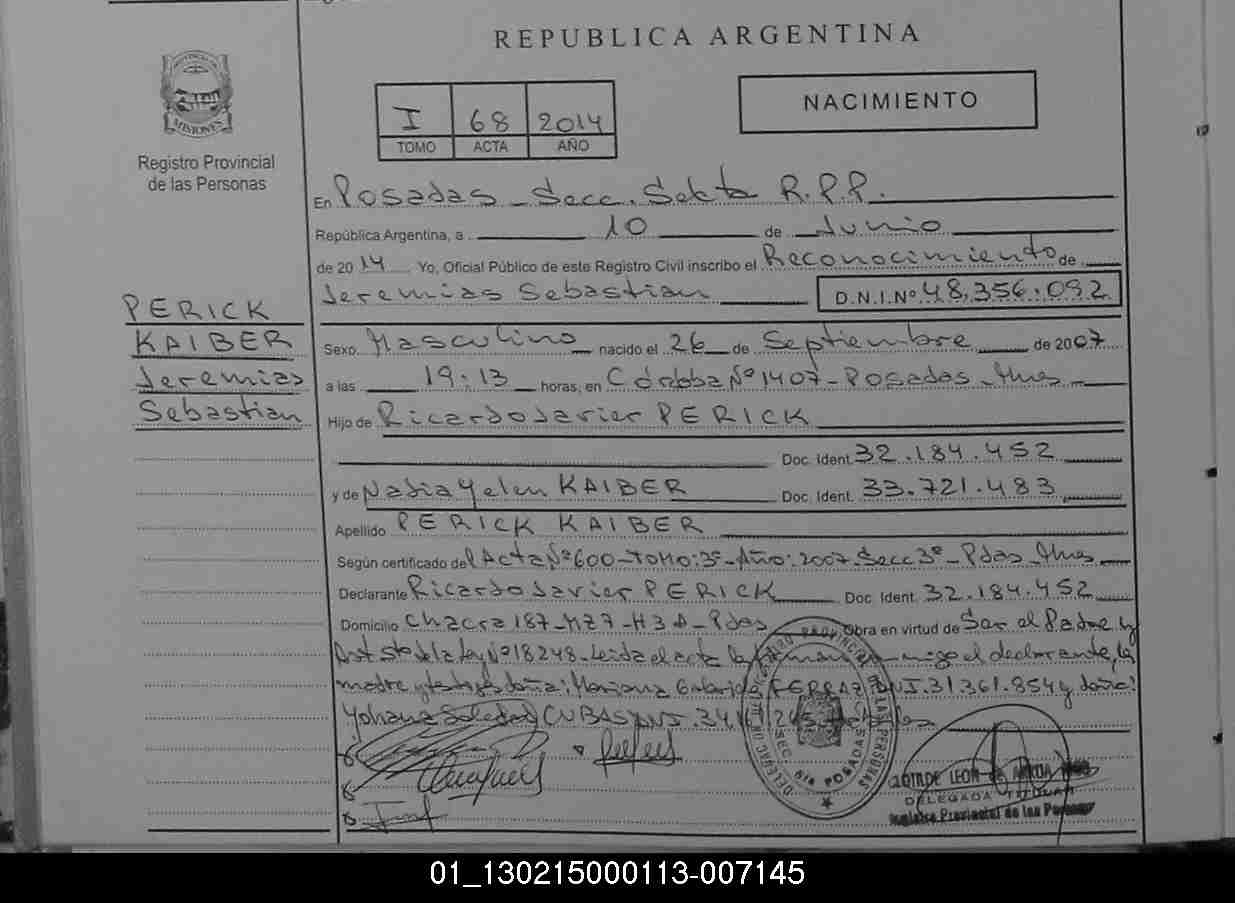 REPUBLICA ARGENTINA
PROVINCIA DE
MISIONES
Registro Provincial
de las Personas
I 68 2014
TOMO ACTA AÑO
NACIMIENTO
En Posadas - Secc. Sexta R.P.P.
República Argentina, a 10 de Junio
de 2014 Yo, Oficial Público de este Registro Civil inscribo el Reconocimiento de
Jeremias Sebastian D.N.I.Nº 48.356.092
PERICK
KAIBER
Jeremias
Sebastian
Sexo Masculino nacido el 26 de Septiembre de 2007
a las 19:13 horas, en Córdoba Nº 1407 - Posadas - Mnes
Hijo de Ricardo Javier PERICK
Doc. Ident. 32.184.452
y de Nadia Yelen KAIBER Doc. Ident. 33.721.483
Apellido PERICK KAIBER
Según certificado del Acta Nº 600 - TOMO: 3º - Año: 2007 - Secc 3º - Pdas - Mnes
Declarante Ricardo Javier PERICK Doc. Ident. 32.184.452
Domicilio Chacra 187 - MZ7 - H3 - Pdas Obra en virtud de Ser el Padre y
Art. 5to de la Ley Nº 18248 - Leida el acta la firman migo el declarante, la
madre y testigos doña: Mariana Gabriela FERRAZ DNI. 31.361.854 y doña:
Yohana Soledad CUBAS DNI. 34.
SEC. 6ta POSADAS
DELEGADA TITULAR
Registro Provincial de las Personas
01_130215000113-007145